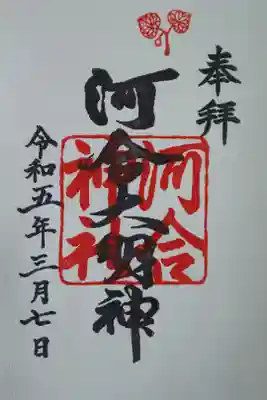 奉拝
河合大明神
河合神社
令和五年三月七日